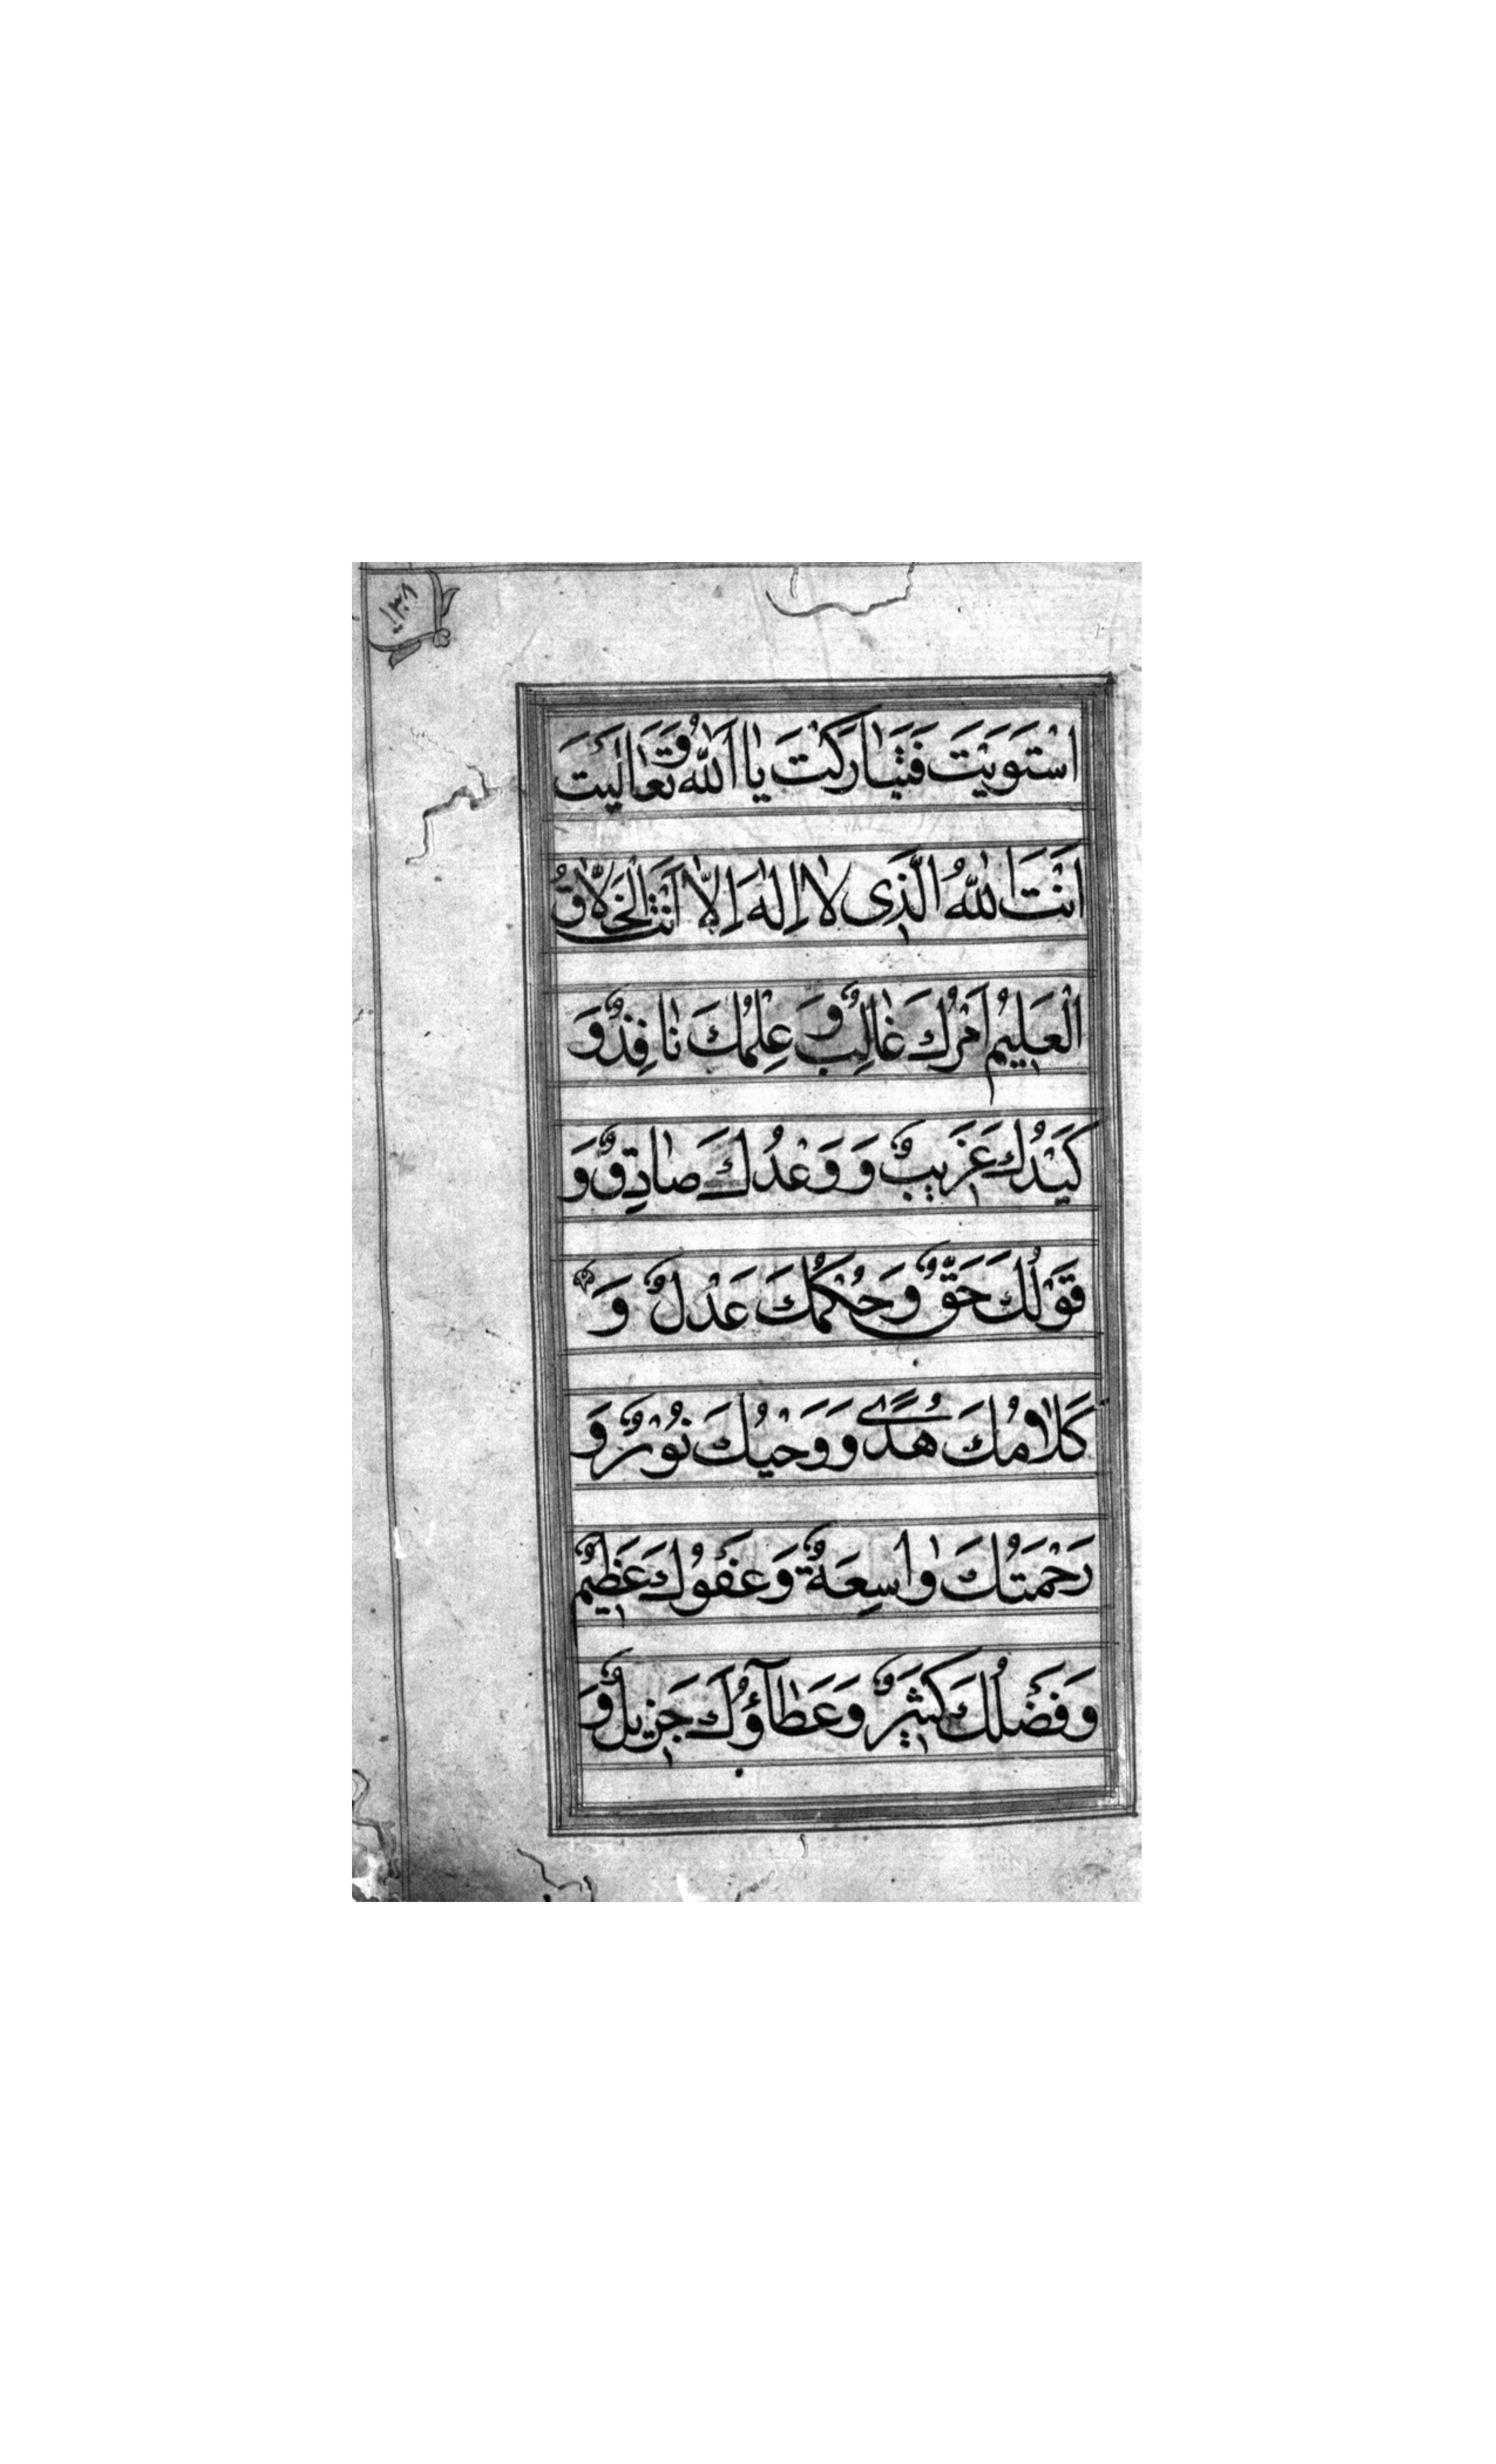 ١٣٨
اسْتَوَيْتَ فَتَبٰارَكْتَ يٰا اَللّٰهُ وَ تَعٰالَيْتَ
اَنْتَ اللّٰهُ الَّذِى لٰا اِلٰهَ اِلّٰا اَنْتَ الْخَلّٰاقُ
الْعَلِيمُ اَمْرُكَ غٰالِبٌ وَ عِلْمُكَ نٰافِذٌ وَ
كَيْدُكَ غَرِيبٌ وَ وَعْدُكَ صٰادِقٌ وَ
قَوْلُكَ حَقٌّ وَ حُكْمُكَ عَدْلٌ وَ
كَلٰامُكَ هُدًى وَ وَحْيُكَ نُوْرٌ وَ
رَحْمَتُكَ وٰاسِعَةٌ وَ عَفْوُكَ عَظِيمٌ
وَ فَضْلُكَ كَثِيرٌ وَ عَطٰآؤُكَ جَزِيلٌ وَ